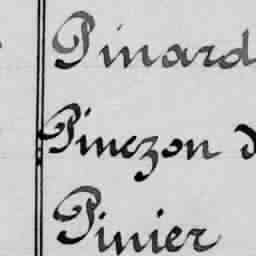 Pinard
Pinczon d
Pinier